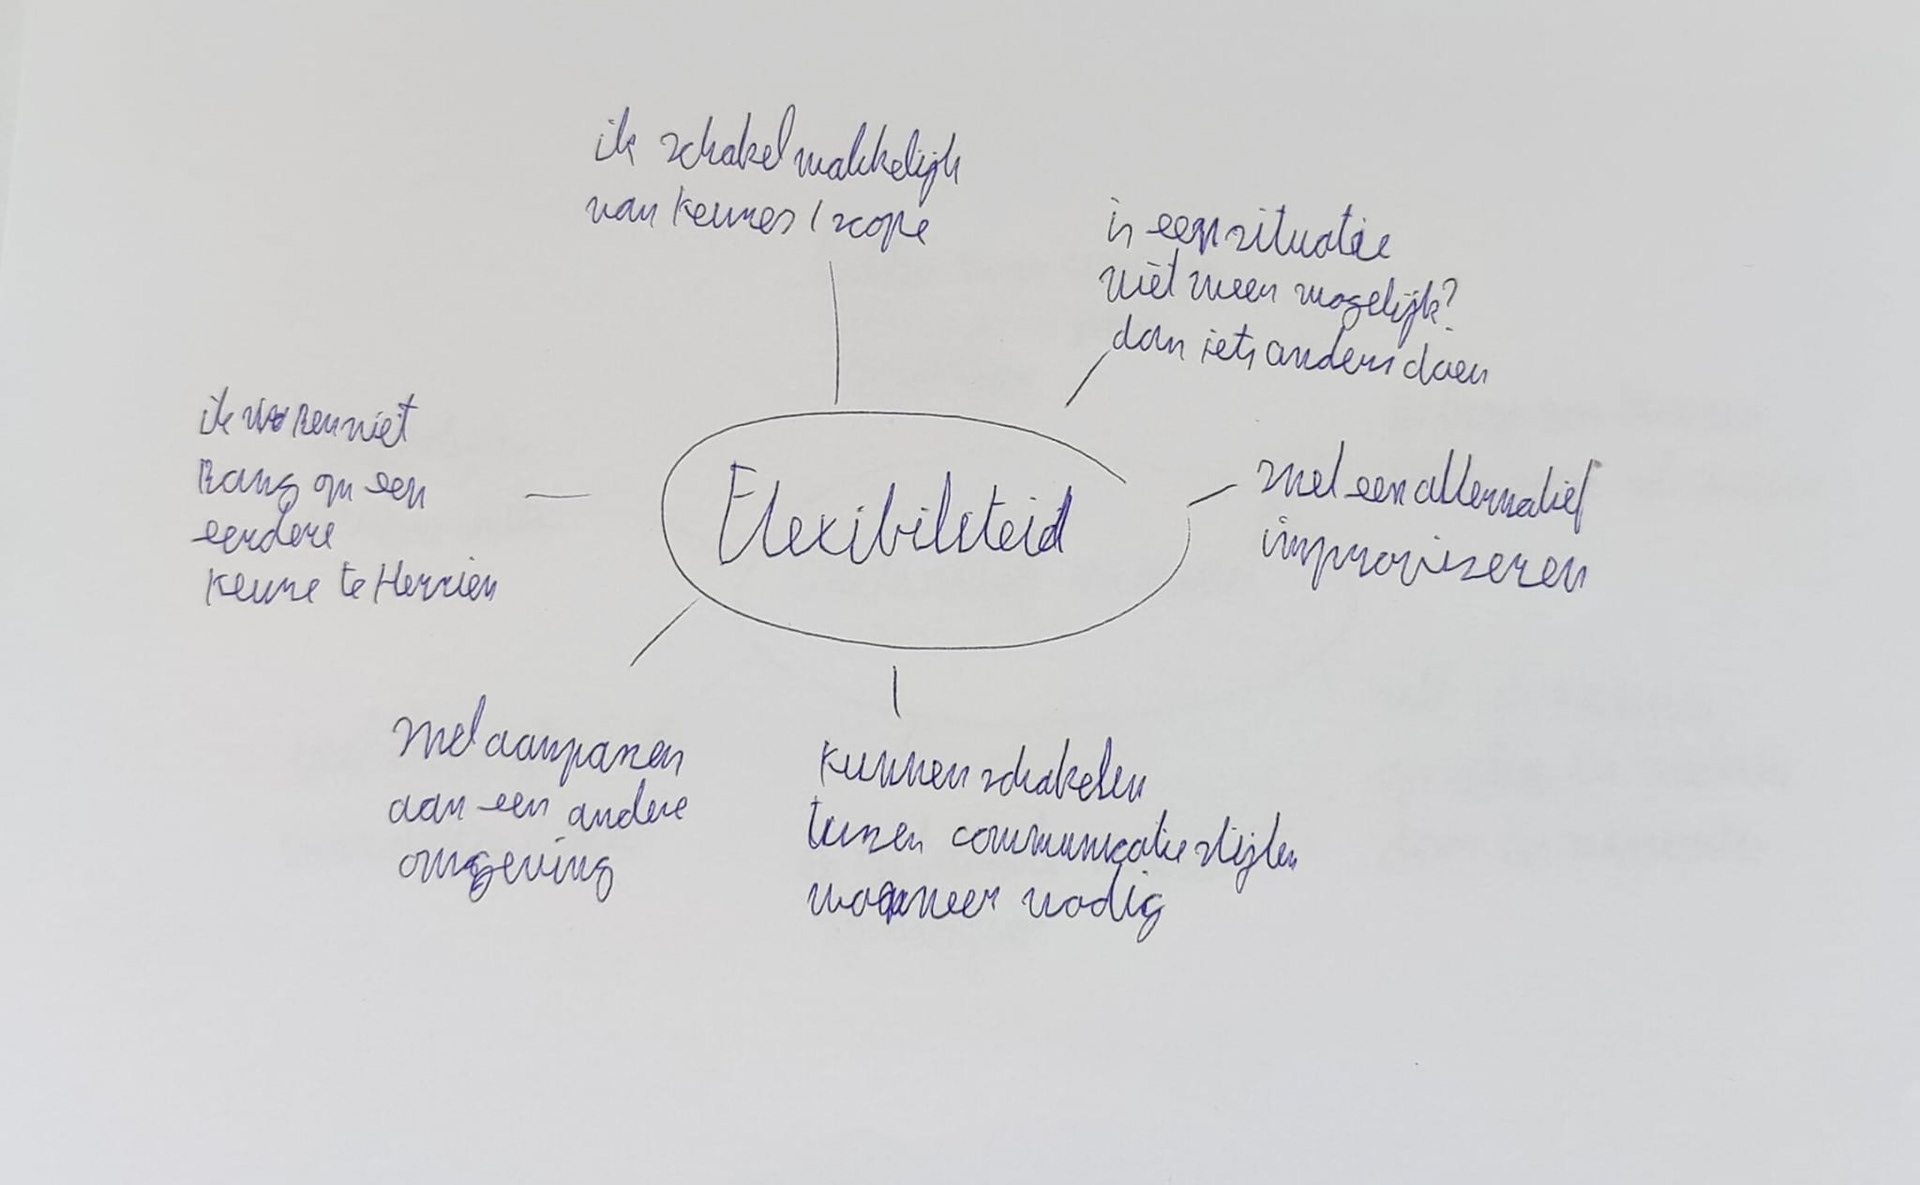 ik schakel makkelijk
van keuzes / scope
is een situatie
niet meer mogelijk?
dan iets anders doen
ik ben niet
bang om een
eerdere
keuze te Herzien
Flexibiliteid
snel een alternatief
improviseren
snel aanpassen
aan een andere
omgeving
kunnen schakelen
tussen communicatie stijlen
wanneer nodig